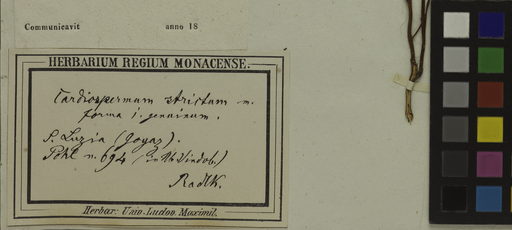 Communicavit anno 18
HERBARIUM REGIUM MONACENSE.
Cardiospermum strictum m.
forma 1. genuinum.
S. Luzia (Goyaz).
Pohl n. 694 (in Hb. Vindob.)
Radlk.
Herbar: Univ. Ludov. Maximil.